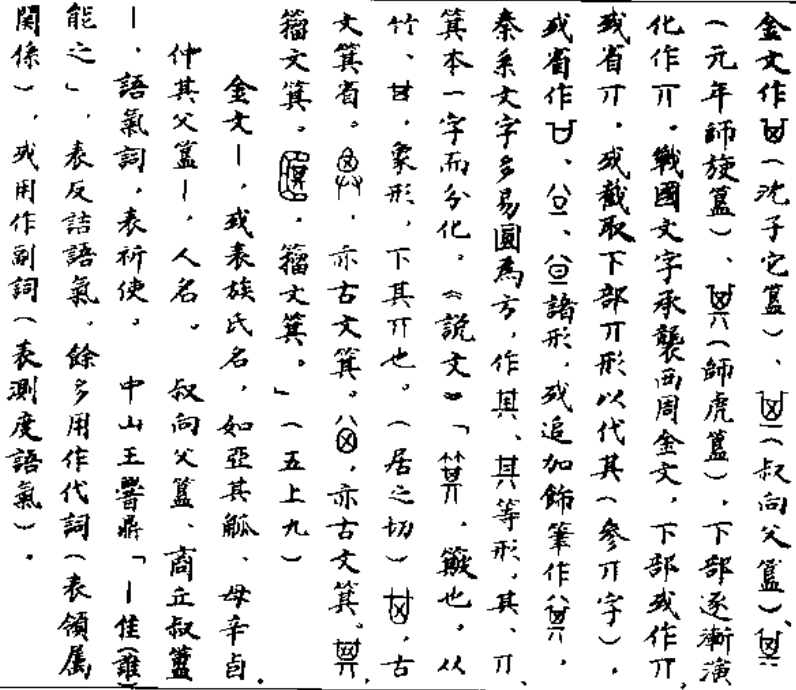 金文作（沈子它簋）、（叔向父簋）、
（元年師旋簋）、（師虎簋），下部逐漸演
化作丌。戰國文字承襲西周金文，下部或作丌，
或省丌，或截取下部丌形以代其（參丌字），
或省作、、諸形，或追加飾筆作，
秦系文字多易圓為方，作其、其等形，其、丌、
箕本一字而分化。《說文》「箕，簸也，从
竹、甘，象形，下其丌也。（居之切），古
文箕省。，亦古文箕。，亦古文箕。，
籀文箕。，籀文箕。」（五上九）
金文｜，或表族氏名，如亞其觚、母辛卣。
仲其父簋｜，人名。　叔向父簋、商丘叔簠
｜，語氣詞，表祈使。　中山王鼎「｜隹（誰）
能之」，表反詰語氣，餘多用作代詞（表領屬
關係），或用作副詞（表測度語氣）。